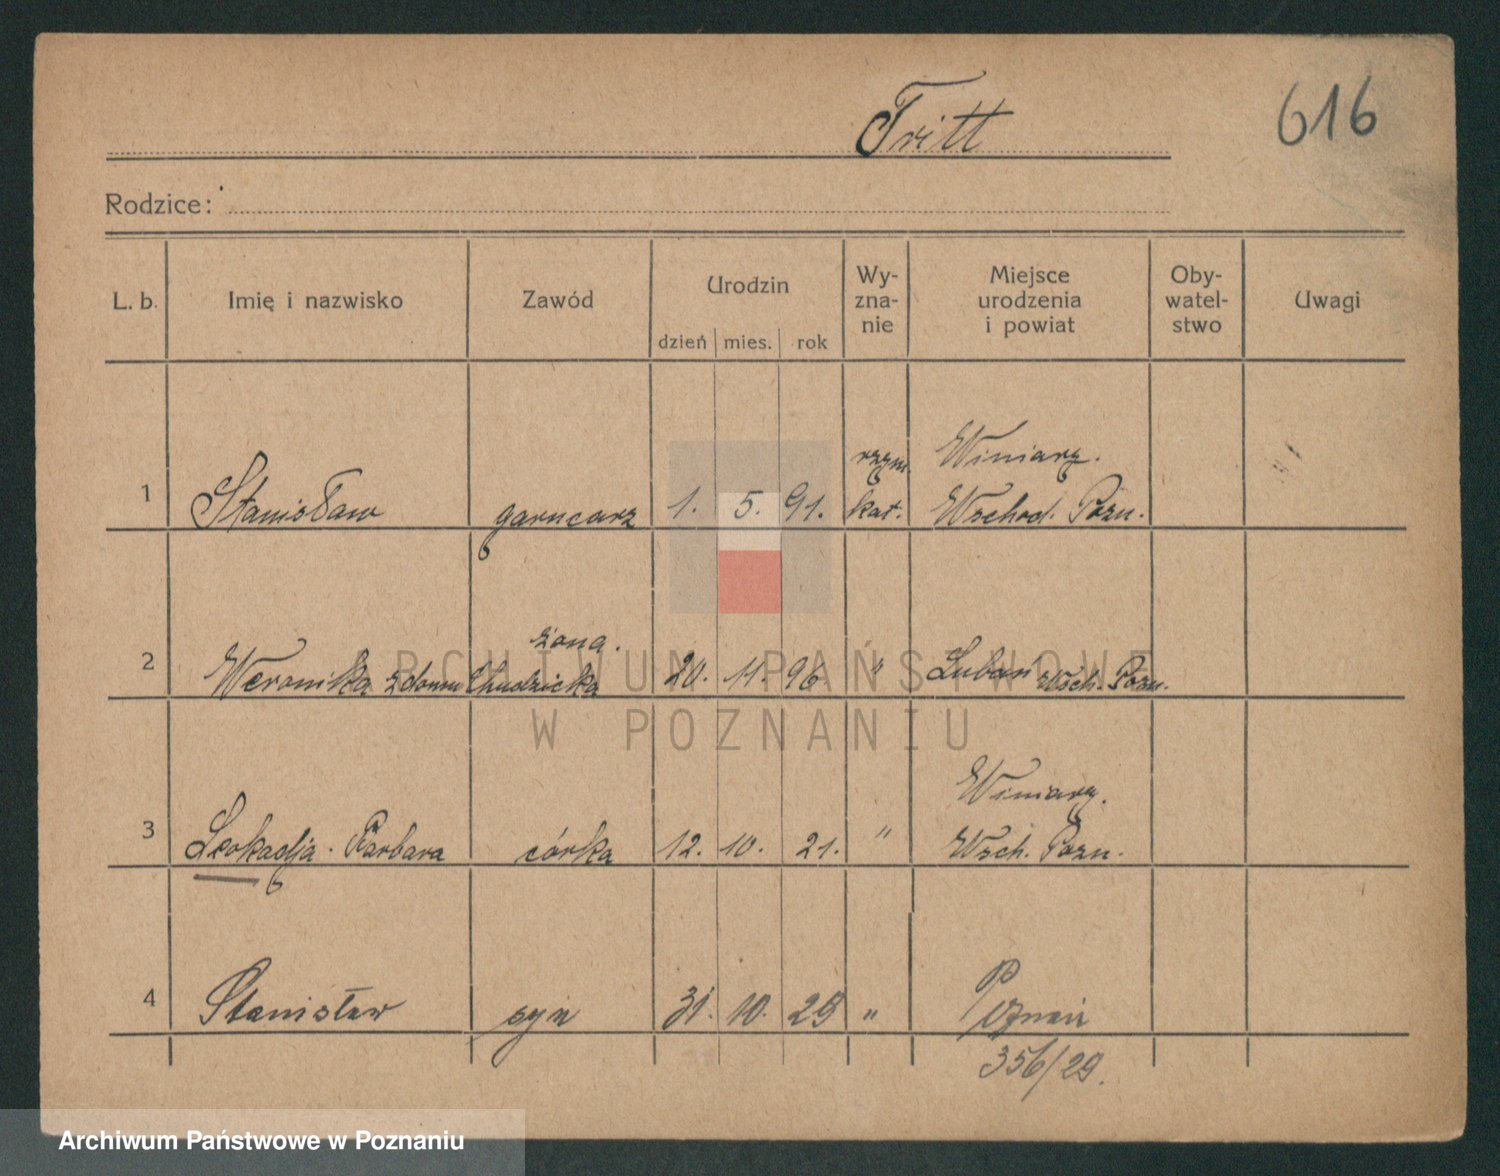 Tritt
616
Rodzice:
L. b. Imię i nazwisko Zawód Urodzin dzień mies. rok Wy-zna-nie Miejsce urodzenia i powiat Oby-watel-stwo Uwagi
rzym. Winiary.
1 Stanisław garncarz 1. 5. 91. kat. Wschod. Pozn.
żona.
2 Weronika z domu Chudzicka 20. 11. 96. " Luboń Wsch. Pozn.
Winiary.
3 Leokadja Barbara córka 12. 10. 21. " Wsch. Pozn.
4 Stanisław syn 31. 10. 29 " Poznań
356/29.
ARCHIWUM PAŃSTWOWE
W POZNANIU
Archiwum Państwowe w Poznaniu